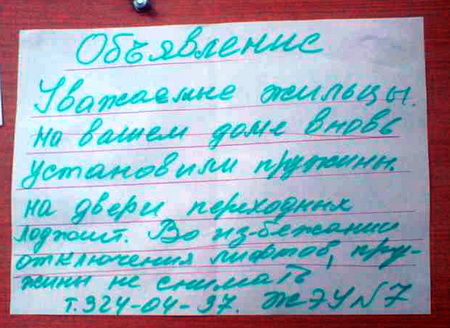 Объявление
Уважаемые жильцы.
на вашем доме вновь
установили пружины.
на двери переходных
лоджит. Во из-бежании
отключения лифтов, пру-
жины не снимать
т. 324-04-37. ЖЭУ N7